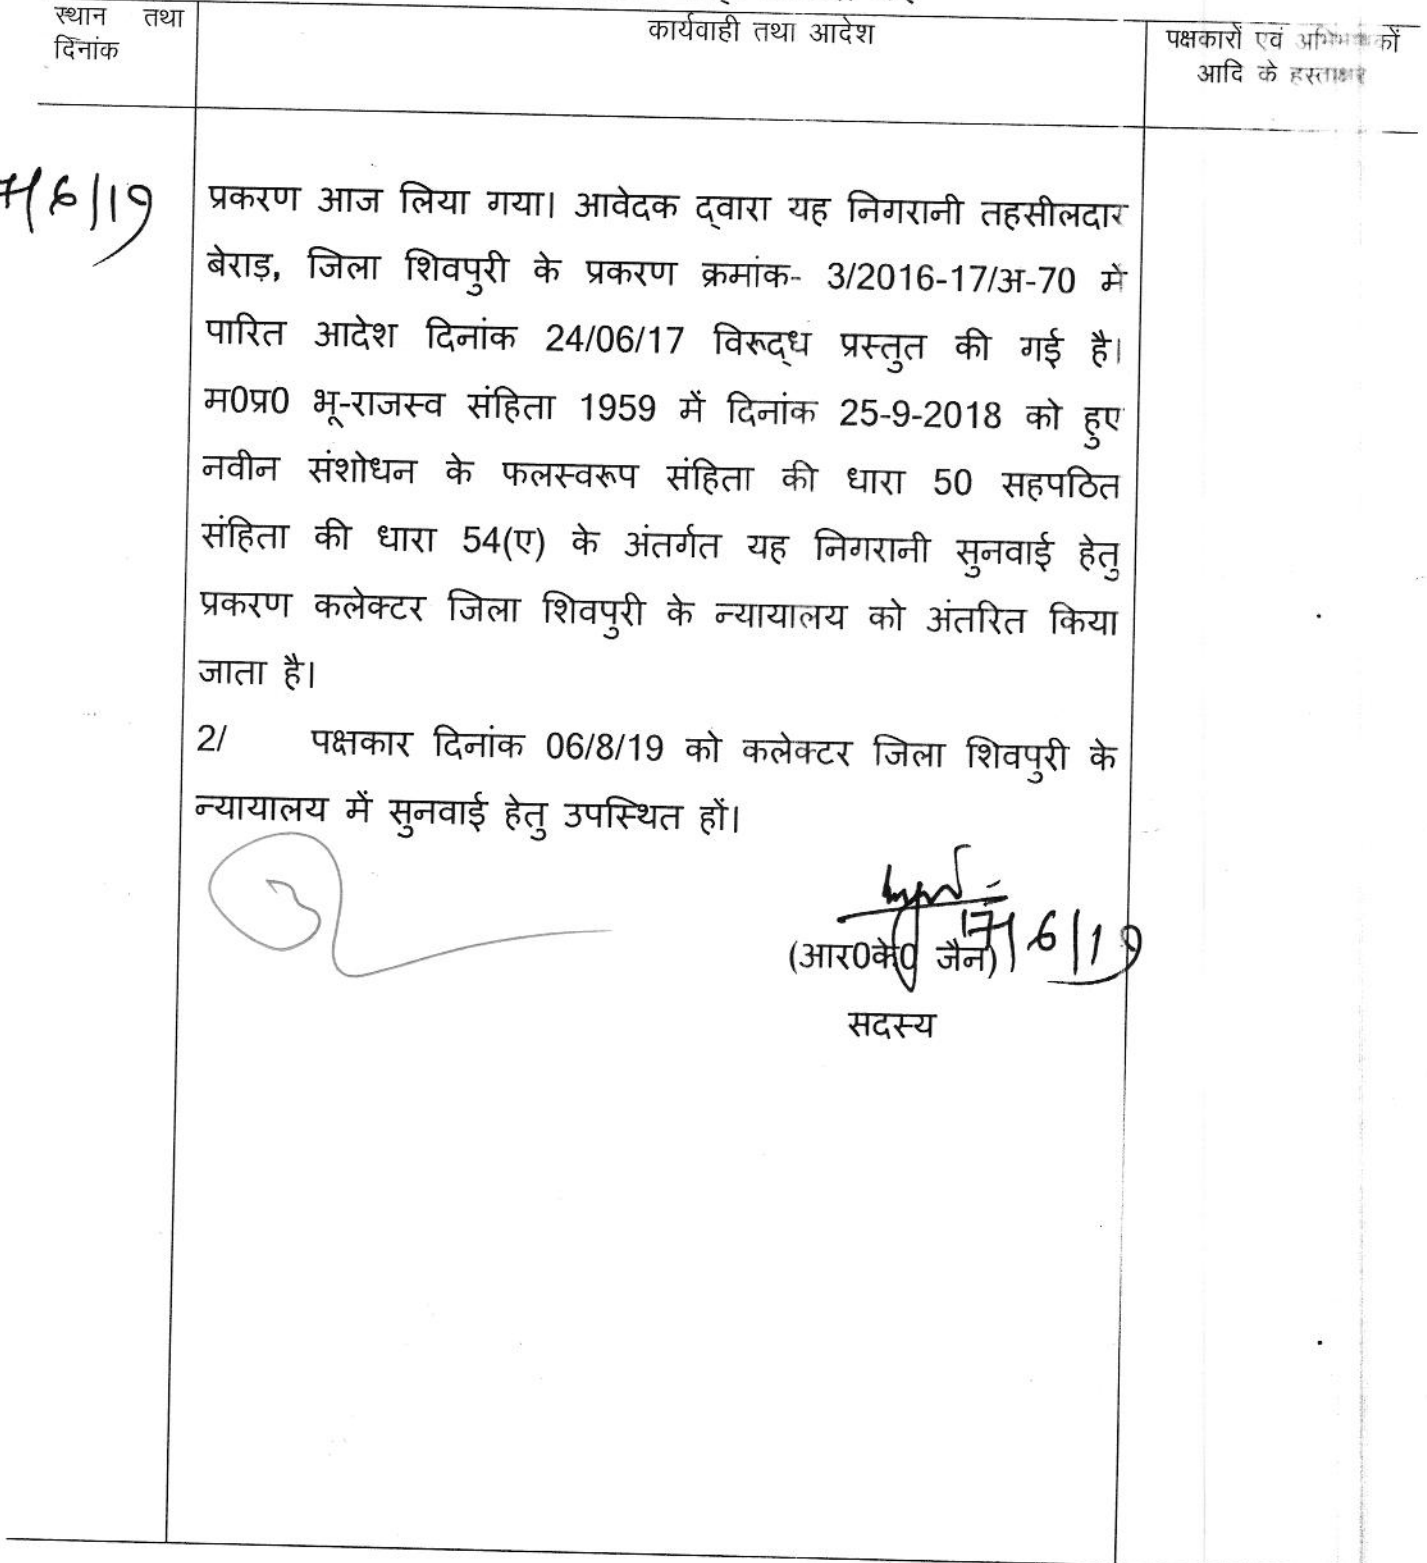 स्थान तथा
दिनांक
कार्यवाही तथा आदेश
पक्षकारों एवं अभिभाषकों
आदि के हस्ताक्षर
7/6/19
प्रकरण आज लिया गया। आवेदक द्वारा यह निगरानी तहसीलदार
बेराड़, जिला शिवपुरी के प्रकरण क्रमांक- 3/2016-17/अ-70 में
पारित आदेश दिनांक 24/06/17 विरूद्ध प्रस्तुत की गई है।
म0प्र0 भू-राजस्व संहिता 1959 में दिनांक 25-9-2018 को हुए
नवीन संशोधन के फलस्वरूप संहिता की धारा 50 सहपठित
संहिता की धारा 54(ए) के अंतर्गत यह निगरानी सुनवाई हेतु
प्रकरण कलेक्टर जिला शिवपुरी के न्यायालय को अंतरित किया
जाता है।
2/ पक्षकार दिनांक 06/8/19 को कलेक्टर जिला शिवपुरी के
न्यायालय में सुनवाई हेतु उपस्थित हों।
17/6/19
(आर0के0 जैन)
सदस्य